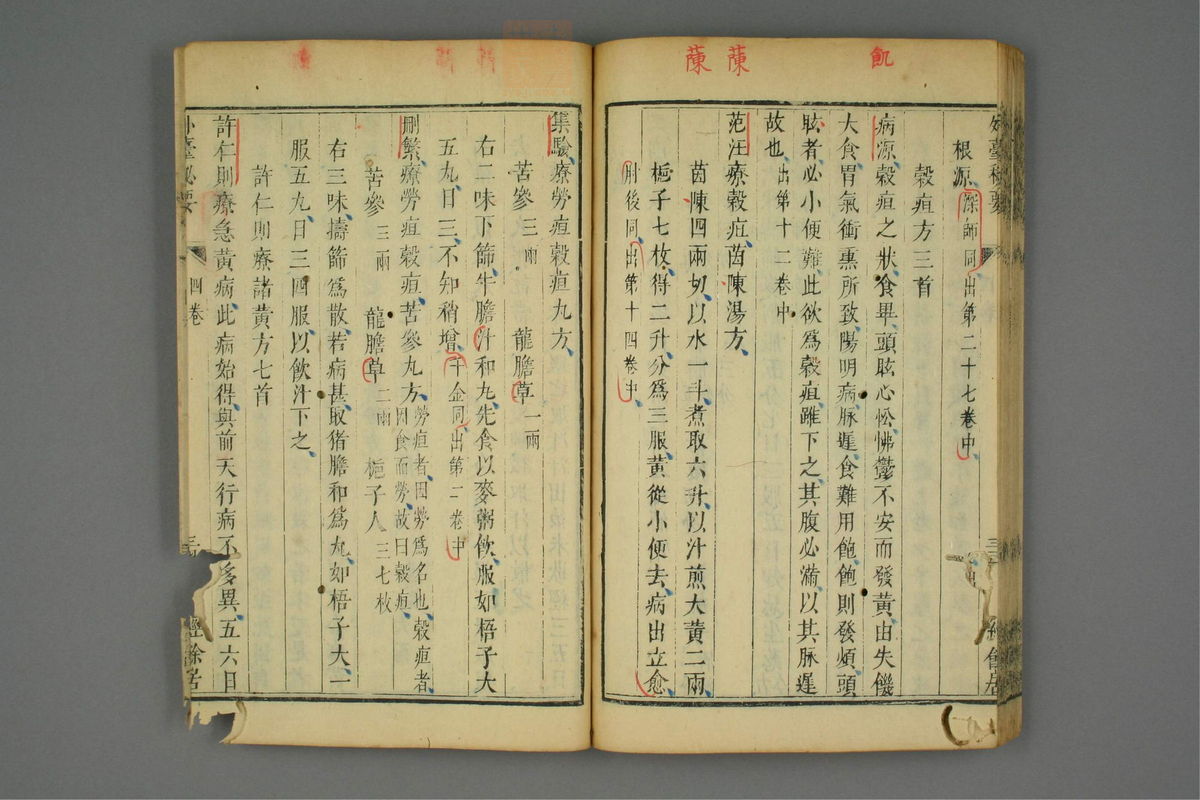 飢
蔯
蔯
根源深師同出第二十七卷中
穀疸方三首
病源穀疸之狀食畢頭眩心忪怫鬱不安而發黃由失饑
大食胃氣衝熏所致陽明病脉遲食難用飽飽則發煩頭
眩者必小便難此欲為穀疸雖下之其腹必滿以其脉遲
故也出第十二卷中
范汪療穀疸茵陳湯方
茵陳四兩切以水一斗煮取六升以汁煎大黃二兩
梔子七枚得二升分為三服黃從小便去病出立愈
肘後同出第十四卷中
集驗療勞疸穀疸丸方
苦參三兩 龍膽草一兩
右二味下篩牛膽汁和丸先食以麥粥飲服如梧子大
五丸日三不知稍增千金同出第二卷中
刪繁療勞疸穀疸苦參丸方勞疸者因勞為名也穀疸者
因食而勞故曰穀疸
苦參三兩 龍膽草二兩 梔子人三七枚
右三味擣篩為散若病甚取猪膽和為丸如梧子大一
服五丸日三四服以飲汁下之
許仁則療諸黃方七首
許仁則療急黃病此病始得與前天行病不多異五六日
臺秘要 四卷 經餘居